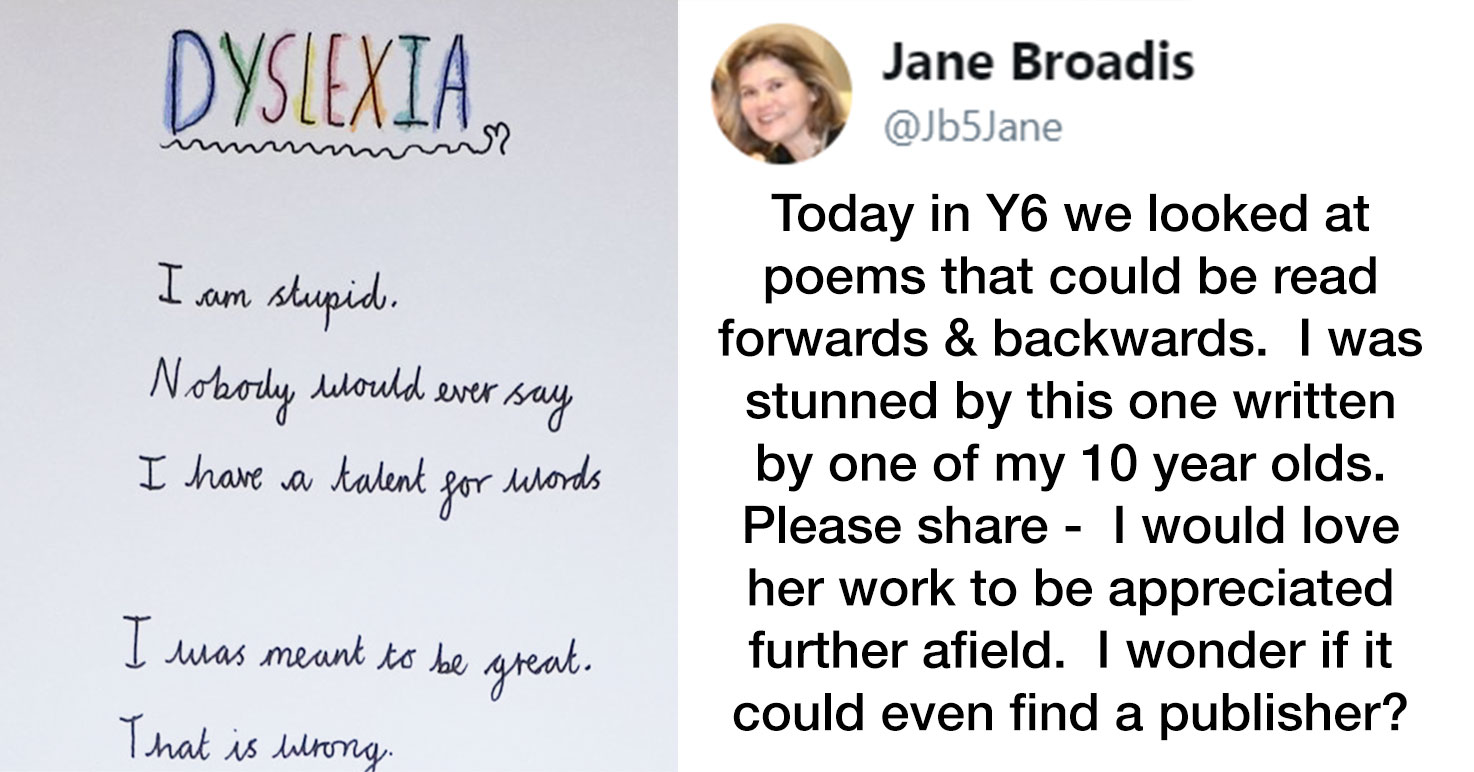 DYSLEXIA
I am stupid.
Nobody would ever say
I have a talent for words
I was meant to be great.
That is wrong.
Jane Broadis
@Jb5Jane
Today in Y6 we looked at
poems that could be read
forwards & backwards. I was
stunned by this one written
by one of my 10 year olds.
Please share - I would love
her work to be appreciated
further afield. I wonder if it
could even find a publisher?